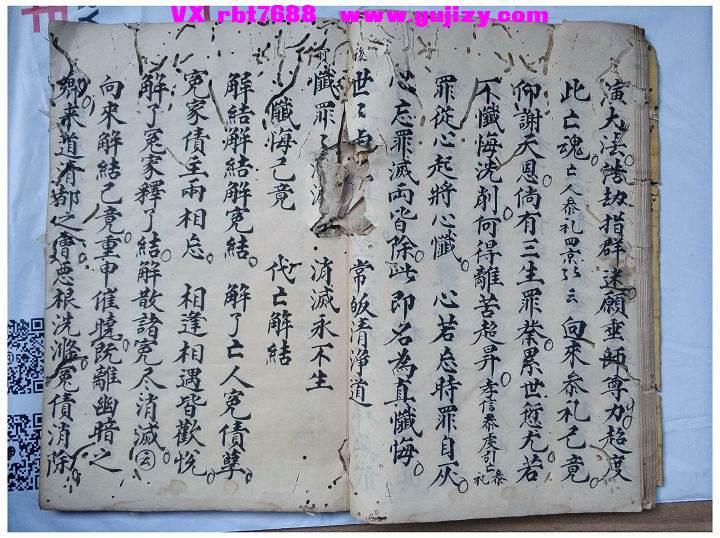 VX rbt7688 www.gujizy.com
演大法誘劫指群迷願垂師尊力超度
此亡魂亡人叅礼四景云向來叅礼已竟
仰謝天恩倘有三生罪業累世愆尤若
不懺悔洗剖何得離苦超昇孝信叅度引亡叅礼
罪從心起將心懺 心若忘時罪自灰
心忘罪滅兩皆除此即名為真懺悔
後世世 常皈清淨道
前懺罪 消滅永不生
懺悔已竟 代亡解結
解結解結解冤結 解了亡人冤債孽
冤家債主兩相忘 相逢相遇皆歡悅
解了冤家釋了結解散諸冤尽消滅云
向來解結已竟重申催曉既離幽暗之
鄉來道清都之會惡根洗滌冤債消除